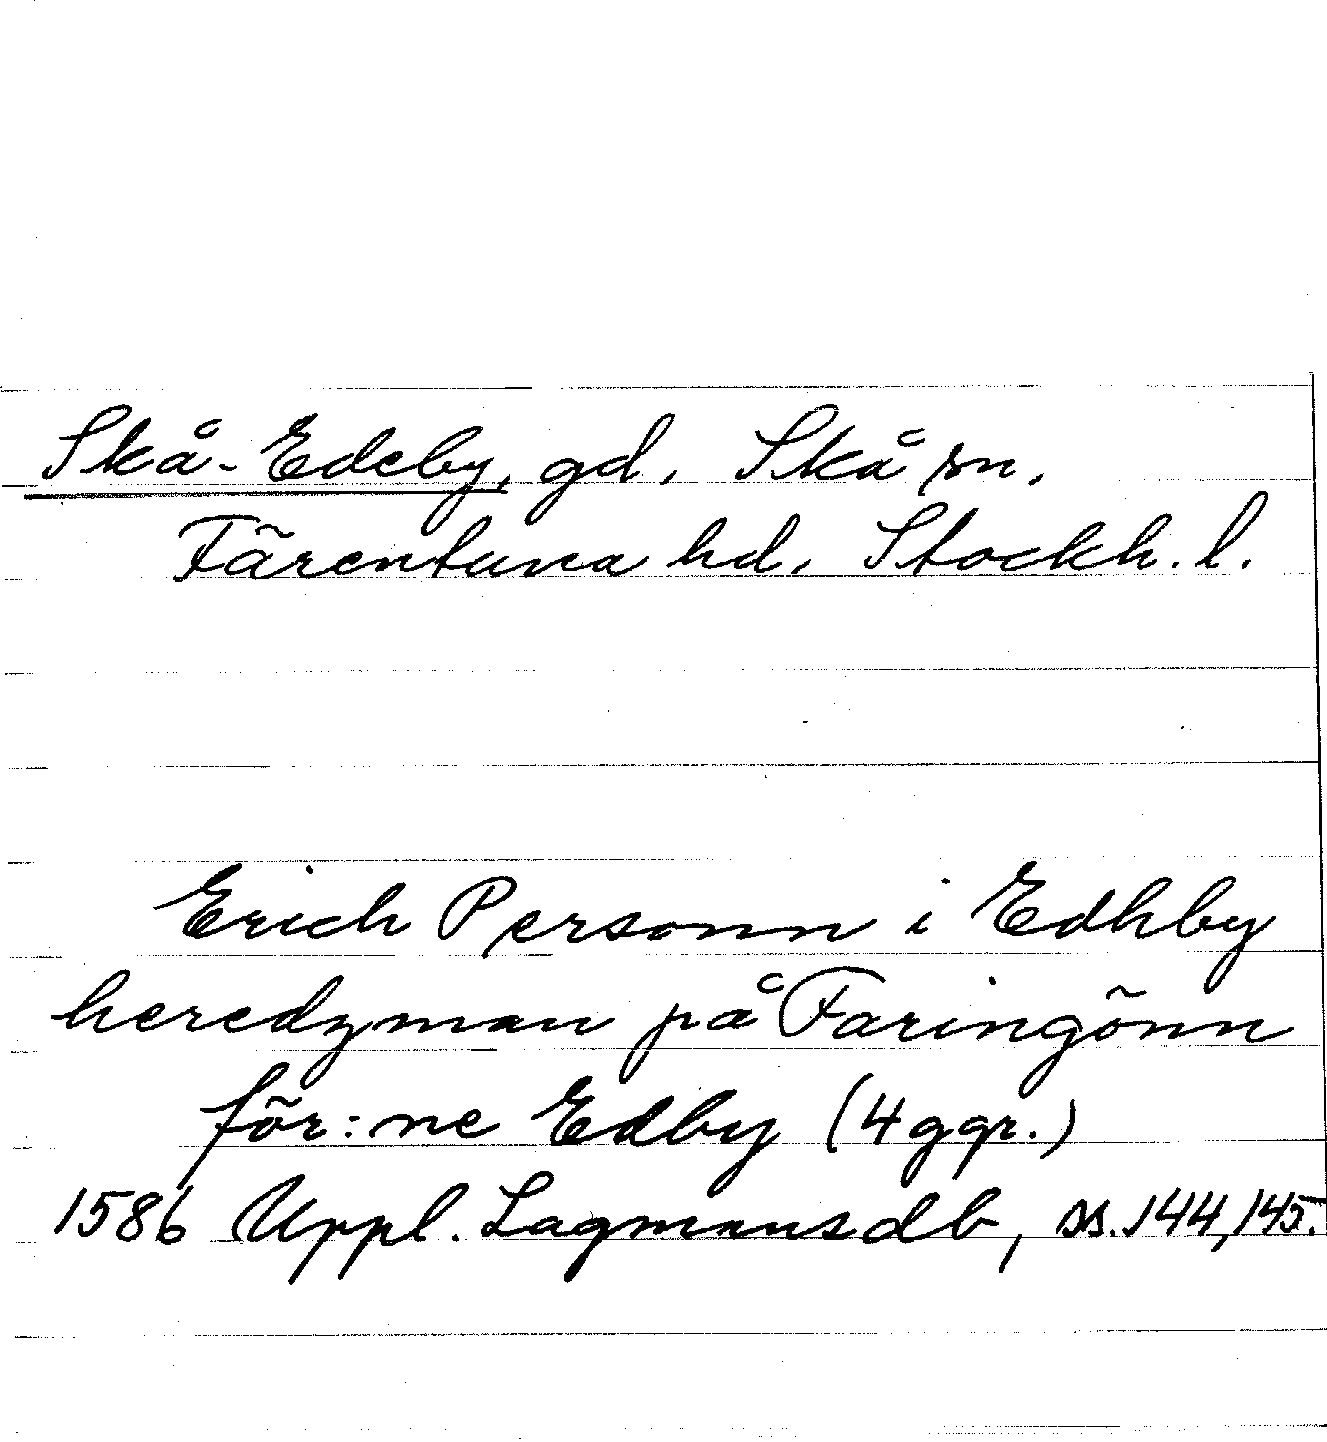 Skå-Edeby, gd, Skå sn,
Färentuna hd, Stockh. l.
Erich Personn i Edhby
heredzman på Faringönn
för:ne Edby (4 ggr.)
1586 Uppl. Lagmansdb, ss. 144, 145.